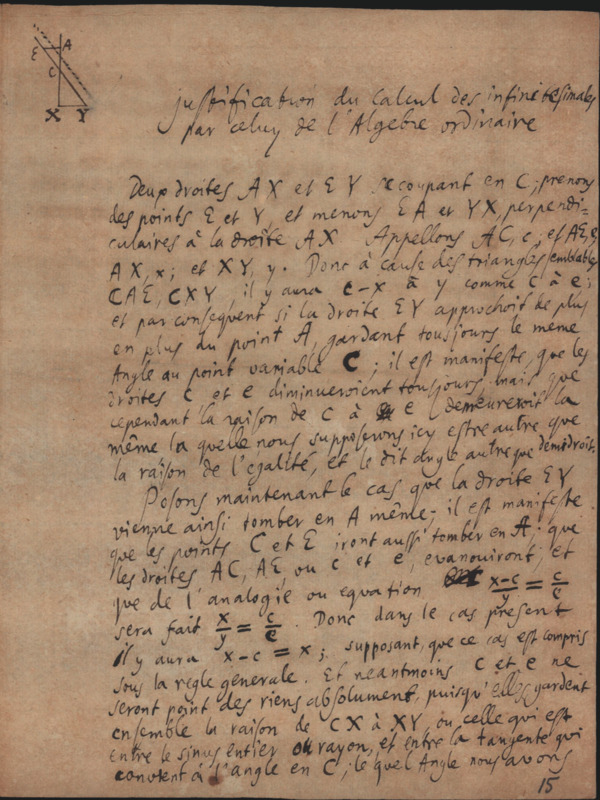 A
E
C
X Y
justification du Calcul des infinitesimales
par celuy de l'Algebre ordinaire
Deux droites AX et EY se coupant en C; prenons
des points E et Y, et menons EA et YX, perpendi=
culaires à la droite AX Appellons AC, c; et AE, e;
AX, x; et XY, y. Donc à cause des triangles semblables
CAE, CXY il y aura c-x à y comme c à e;
et par consequent si la droite EY approchoit de plus
en plus du point A, gardant tousjours le meme
Angle au point variable C; il est manifeste, que les
droites c et e diminueroient tousjours, mais que
cependant la raison de c à e demeureroit la
même la quelle nous supposerons icy estre autre que
la raison de l'égalité, et le dit angle autre que demidroit.
Posons maintenant le cas que la droite EY
vienne ainsi tomber en A même; il est manifeste
que les points C et E iront aussi tomber en A; que
les droites AC, AE, ou c et e, evanouiront, et
que de l'analogie ou equation x-c/y = c/e
sera fait x/y = c/e. Donc dans le cas présent
il y aura x-c = x; supposant, que ce cas est compris
sous la regle générale. Et neantmoins c et e ne
seront point des riens absolument, puisqu'elles gardent
ensemble la raison de CX à XY, ou celle qui est
entre le sinus entier ou rayon, et entre la tangente qui
convient à l'angle en C; le quel Angle nous avons
15